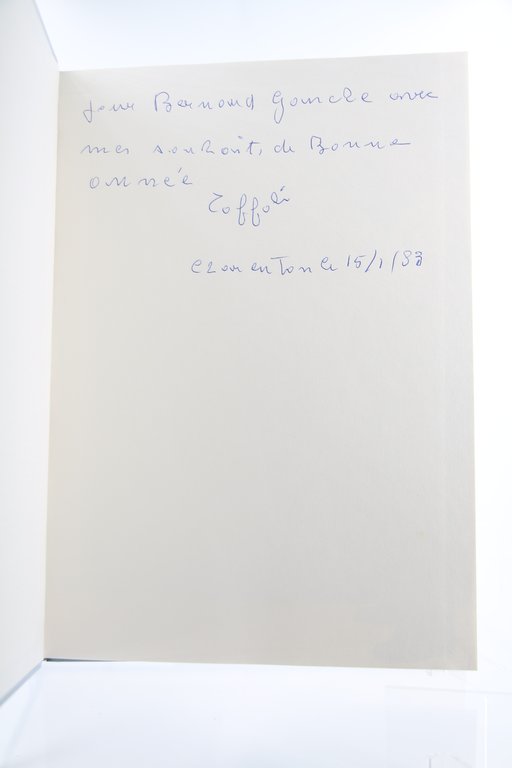 pour Bernard Gouche avec
mes souhait, de Bonne
année
Toffoli
Charenton le 15/1/83